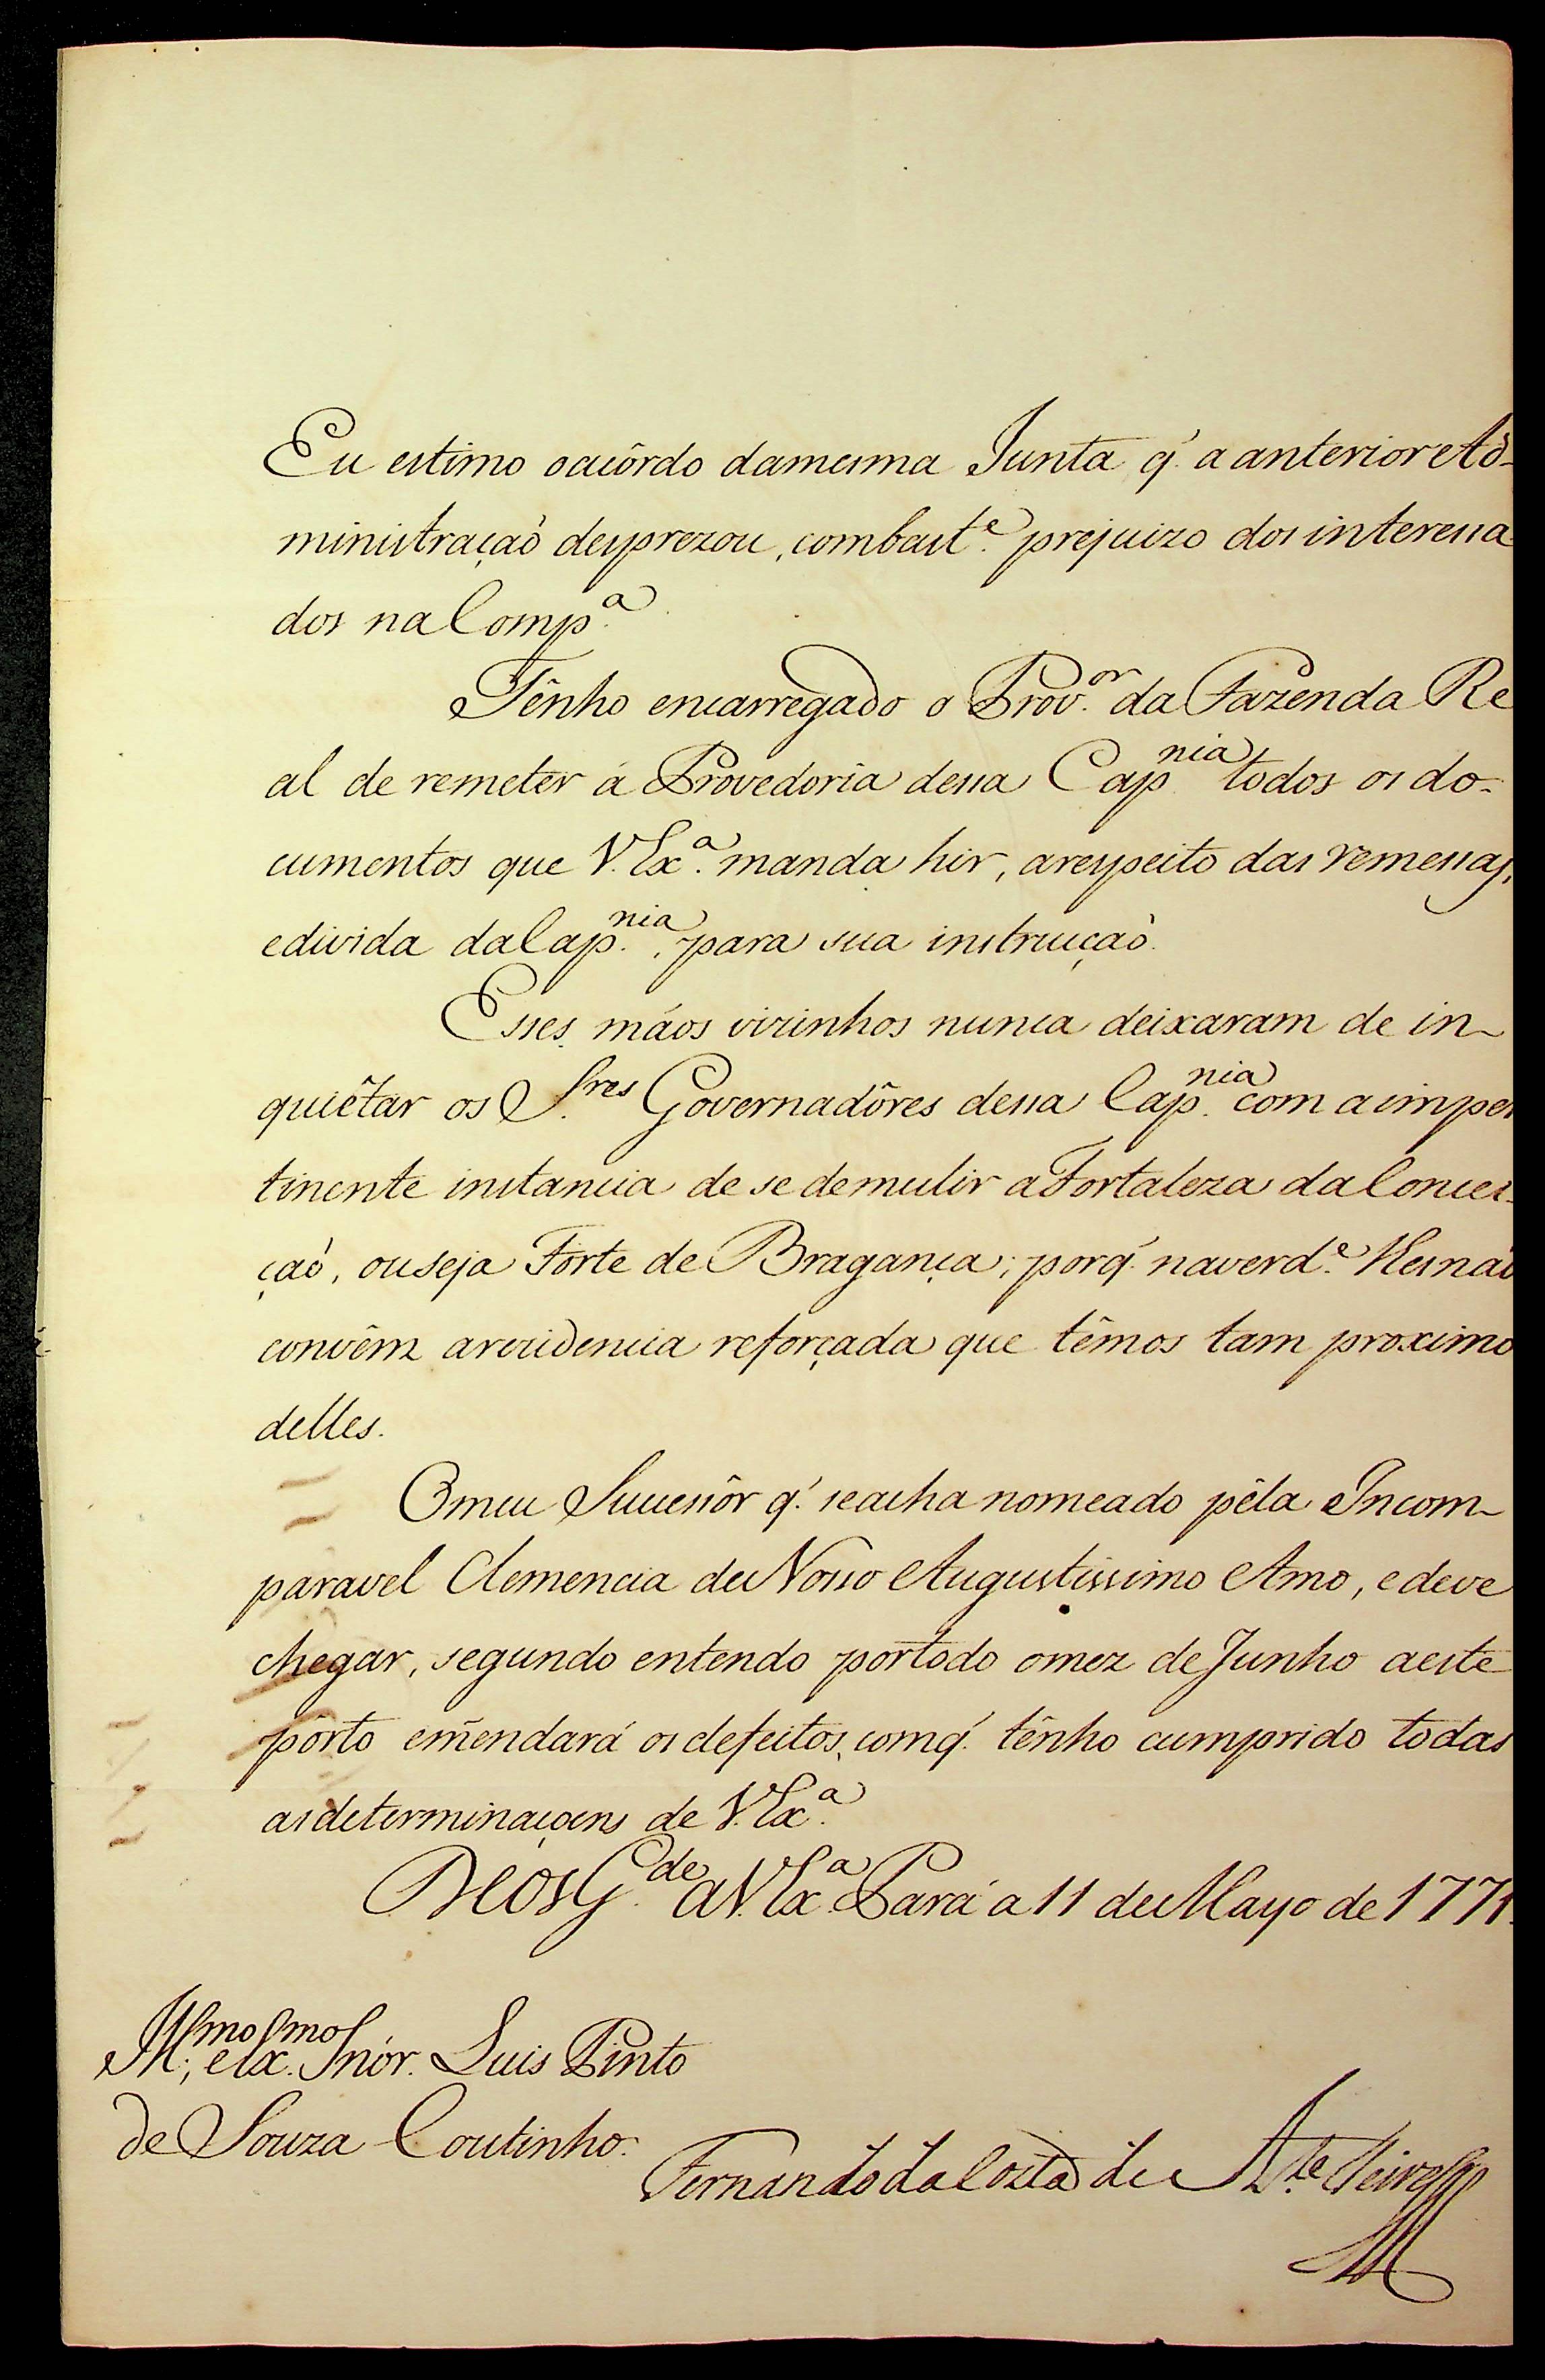 Eu estimo oacôrdo damesma Junta q' a anterior Ad-
ministraçaõ desprezou, combast.e prejuizo dos interessa
dos na Comp.a
Tênho encarregado o Prov.or da Fazenda Re
al de remeter á Provedoria dessa Cap.nia todos os do-
cumentos que V. Ex.a manda hir, arespeito das remessas,
edivida da Cap.nia, para sua instrucçaõ.
Esses máos vizinhos nunca deixaram de in-
quiêtar os S.res Governadôres dessa Cap.nia com a imper
tinente instancia de se demulir a Fortaleza da Concei-
çaõ, ou seja Forte de Bragança; porq' naverd.e lhes naõ
convêm arezidencia reforçada que têmos tam proximo
delles.
O meu Sucessôr q' seacha nomeado pêla Incom-
paravel Clemencia de Nosso Augustissimo Amo, e deve
chegar, segundo entendo portodo omez de Junho aeste
pôrto emendará os defeitos, comq' tênho cumprido todas
as determinaçoens de V. Ex.a
Deos G.de a V. Ex.a Pará a 11 de Mayo de 1771.
Ill.mo, e Ex.mo Snór. Luis Pinto
de Souza Coutinho.
Fernando da Costa de At.e Teive